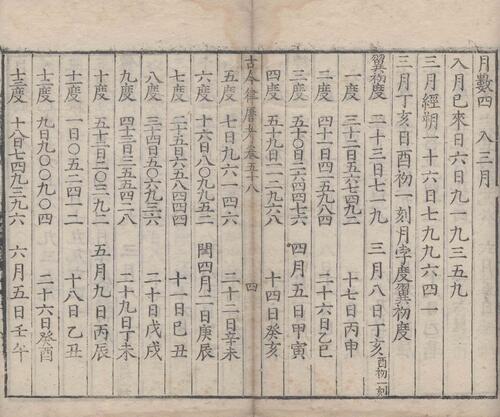 月數四　入三月
入月已來日六日九一九三五九
三月經朔一十六日七九九六四一
三月丁亥日酉初一刻月孛度翼初度
翼初度　三月八日丁亥酉初一刻
一度　十七日丙申
二度　四十一日二四五九八四　二十六日乙巳
三度　五十日〇二六四四七六　四月五日甲寅
四度　五十九日一一二九六八　十四日癸亥
古今律曆考卷五十八　四
五度　七日九六一四六　二十二日辛未
六度　十六日八〇九九五二　閏四月一日庚辰
七度　二十五日六五八四四四　十一日己丑
八度　三十四日五〇六九三六　二十日戊戌
九度　四十三日三五五四二八　二十九日丁未
十度　五十二日二〇三九二　五月九日丙辰
十一度　一日〇五二四一二　十八日乙丑
十二度　九日九〇〇九〇四　二十六日癸酉
十三度　十八日七四九三九六　六月五日壬午